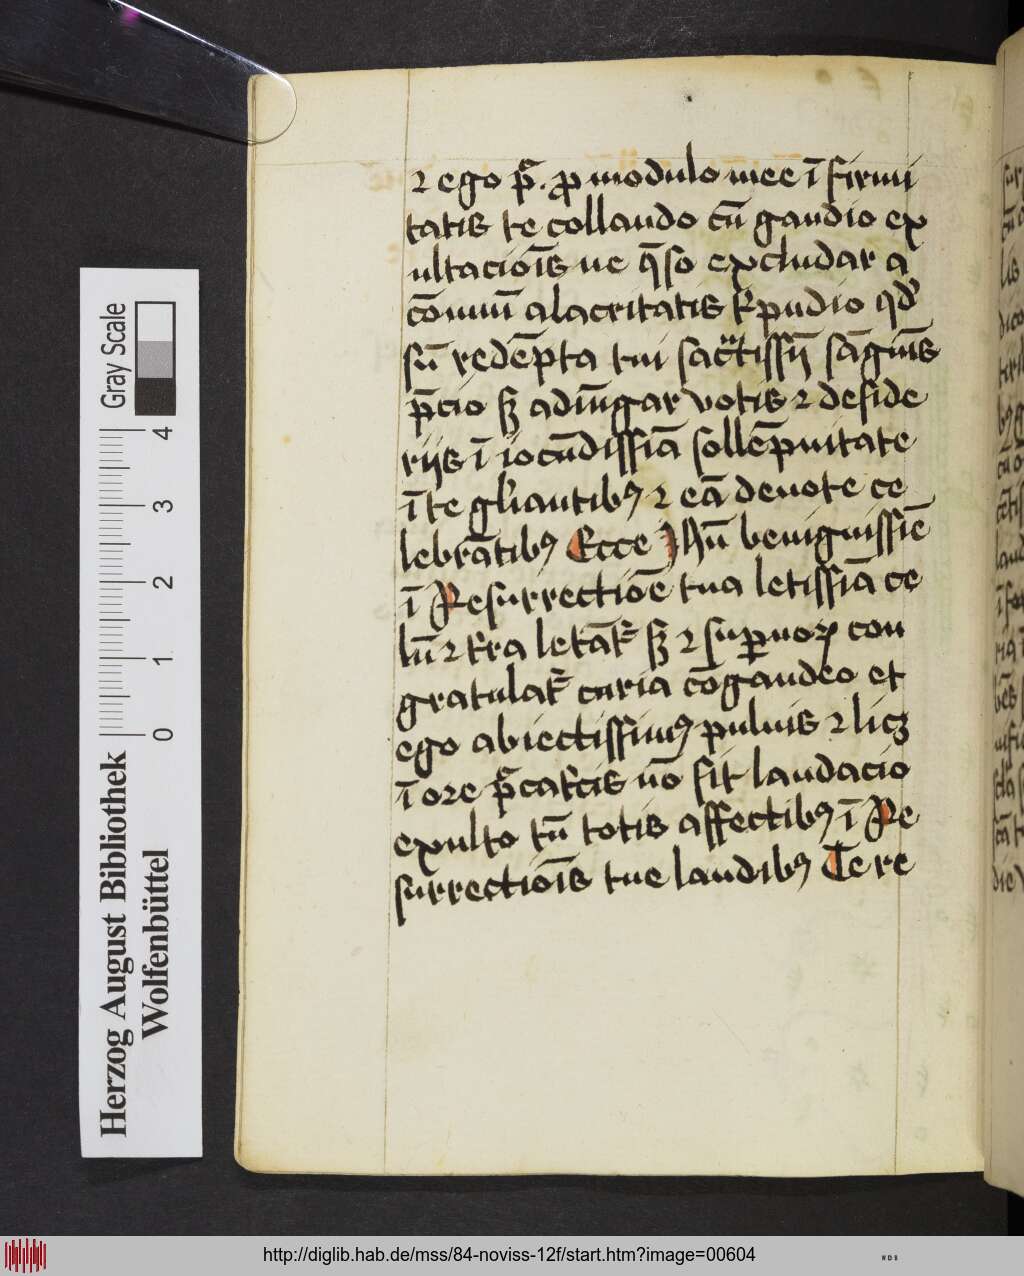 ⁊ ego p̃. ꝓ modulo mee ī firmi
tatis te collaudo cū gaudio ex
ultaciōis ne q̄so excludar a
cōmuni alacritatis t̄pudio qd̓
sū redēpta tui sāctissīj sāguīs
p̄cio sꝫ adiūgar votis ⁊ deside
rijs ī iocūdissīa sollēpnitate
ī te gl̓iantibꝰ ⁊ eā deuote ce
lebrātibꝰ Ecce Jhū benignissīe
ī Resurrectiōe tua letissīa ce
lū ⁊ t̓ra letāt̓ sꝫ ⁊ suꝑnoꝝ con
gratulat̓ curia cōgaudeo et
ego abiectissimꝰ puluis ⁊ licꝫ
ī ore p̄cat̓cis nō sit laudacio
exulto tn̄ totis affectibꝰ ī Re
surrectiōis tue laudibꝰ Te re
Gray Scale
4
3
2
1
0
Herzog August Bibliothek
Wolfenbüttel
http://diglib.hab.de/mss/84-noviss-12f/start.htm?image=00604